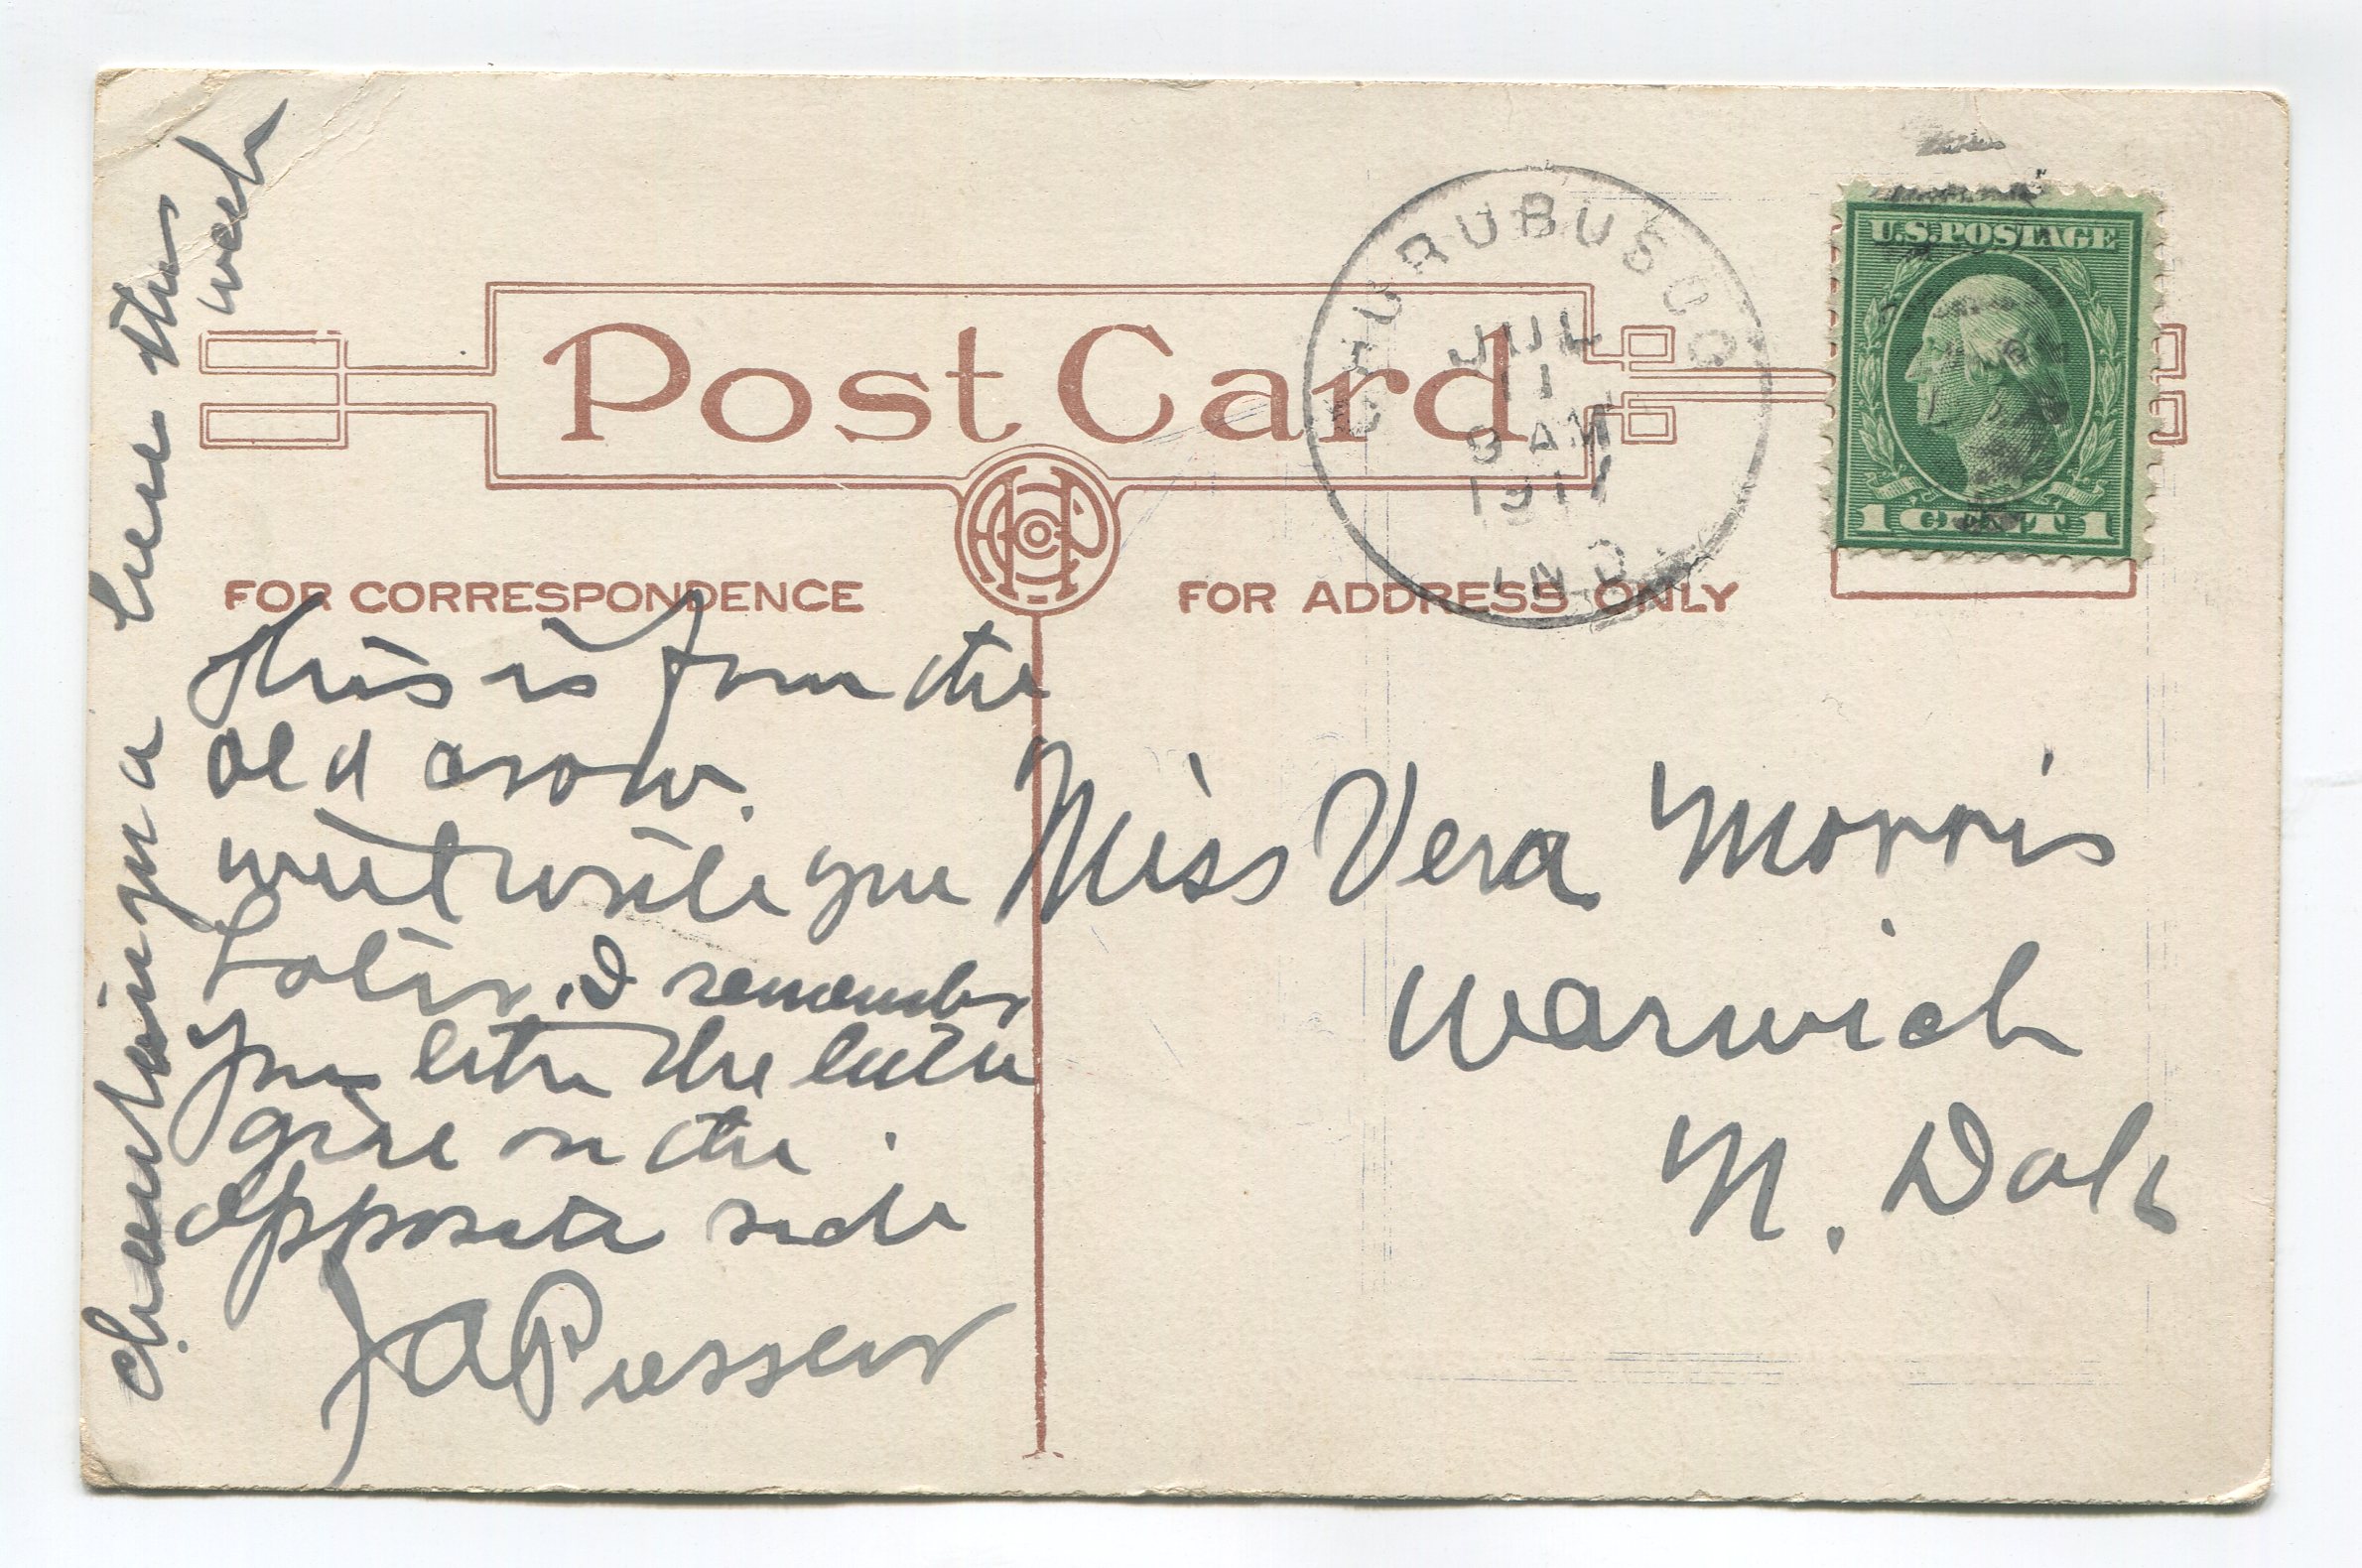 Post Card
FOR CORRESPONDENCE
FOR ADDRESS ONLY
CHURUBUSCO
JUL
11
8 AM
1917
IND.
U.S. POSTAGE
1 CENT 1
This is from the
old crow.
will write you
later. I remember
you
girl on the
opposite side
J A
chautauqua here this
week
Miss Vera Morris
Warwick
N. Dak